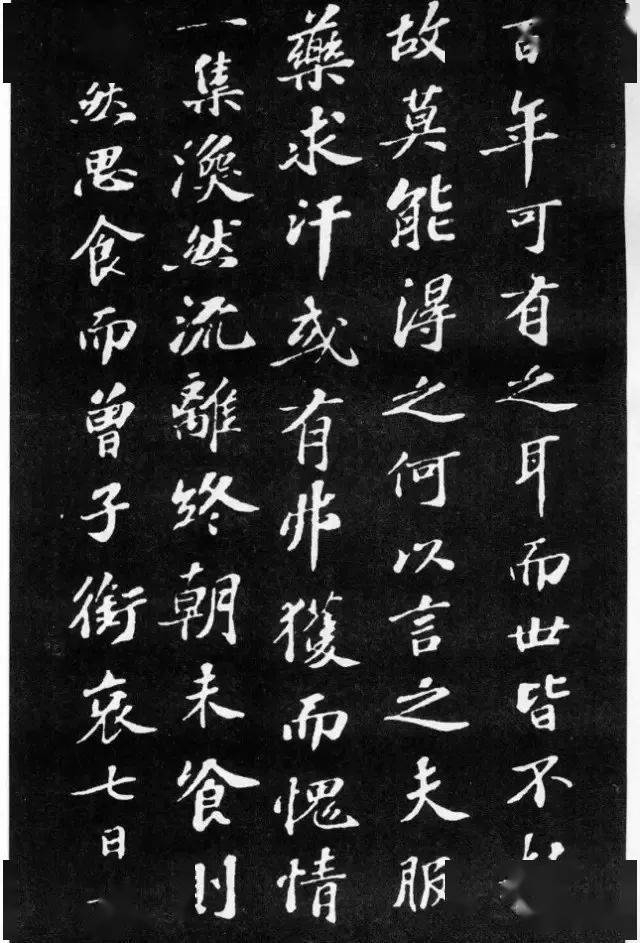 百年可有之耳而世皆不
故莫能得之何以言之夫服
藥求汗或有非獲而愧情
一集渙然流離終朝未餐
然思食而曾子銜哀七日